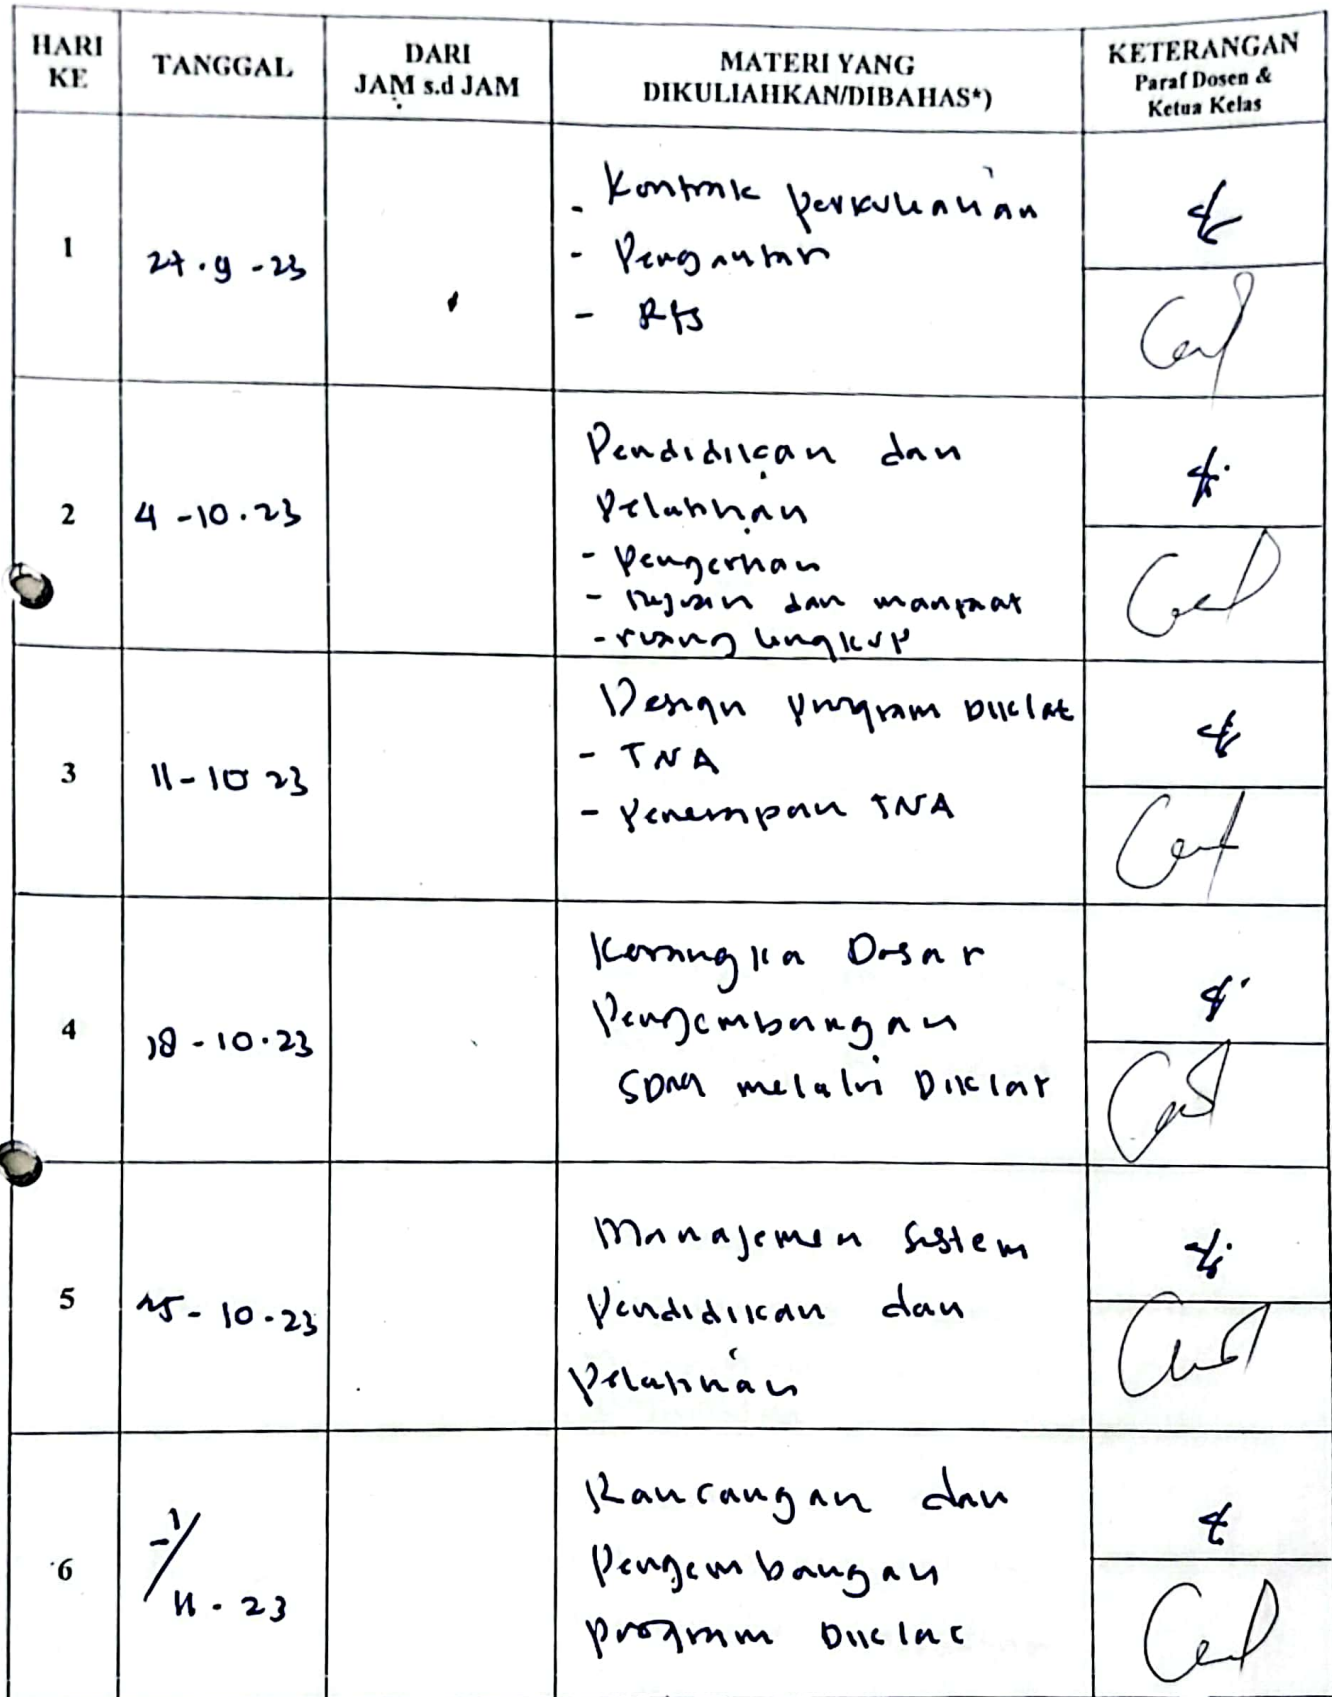 HARI KE
TANGGAL
DARI JAM s.d JAM
MATERI YANG DIKULIAHKAN/DIBAHAS*)
KETERANGAN
Paraf Dosen &
Ketua Kelas
1
27.9-23
- Kontrak perkuliahan
- Pengantar
- RPS
2
4-10.23
Pendidikan dan
Pelatihan
- Pengertian
- tujuan dan manfaat
- ruang lingkup
3
11-10 23
Design program Diklat
- TNA
- Penerapan TNA
4
18-10.23
Kerangka Dasar
Pengembangan
SDM melalui Diklat
5
25-10.23
Manajemen Sistem
Pendidikan dan
Pelatihan
6
1/11.23
Rancangan dan
Pengembangan
program Diklat